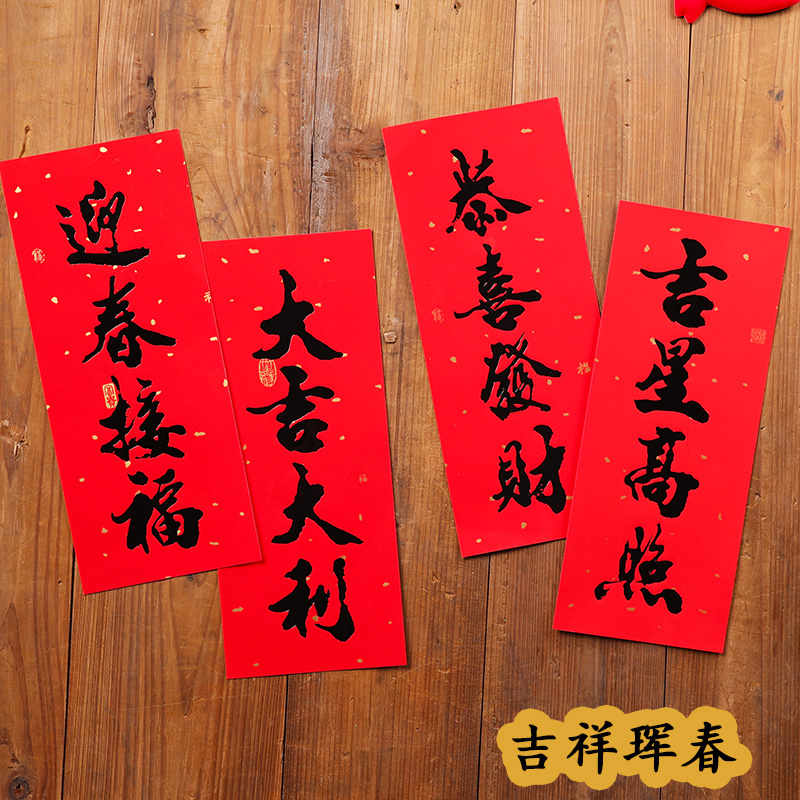 迎春接福
大吉大利
恭喜發財
吉星高照
吉祥珲春